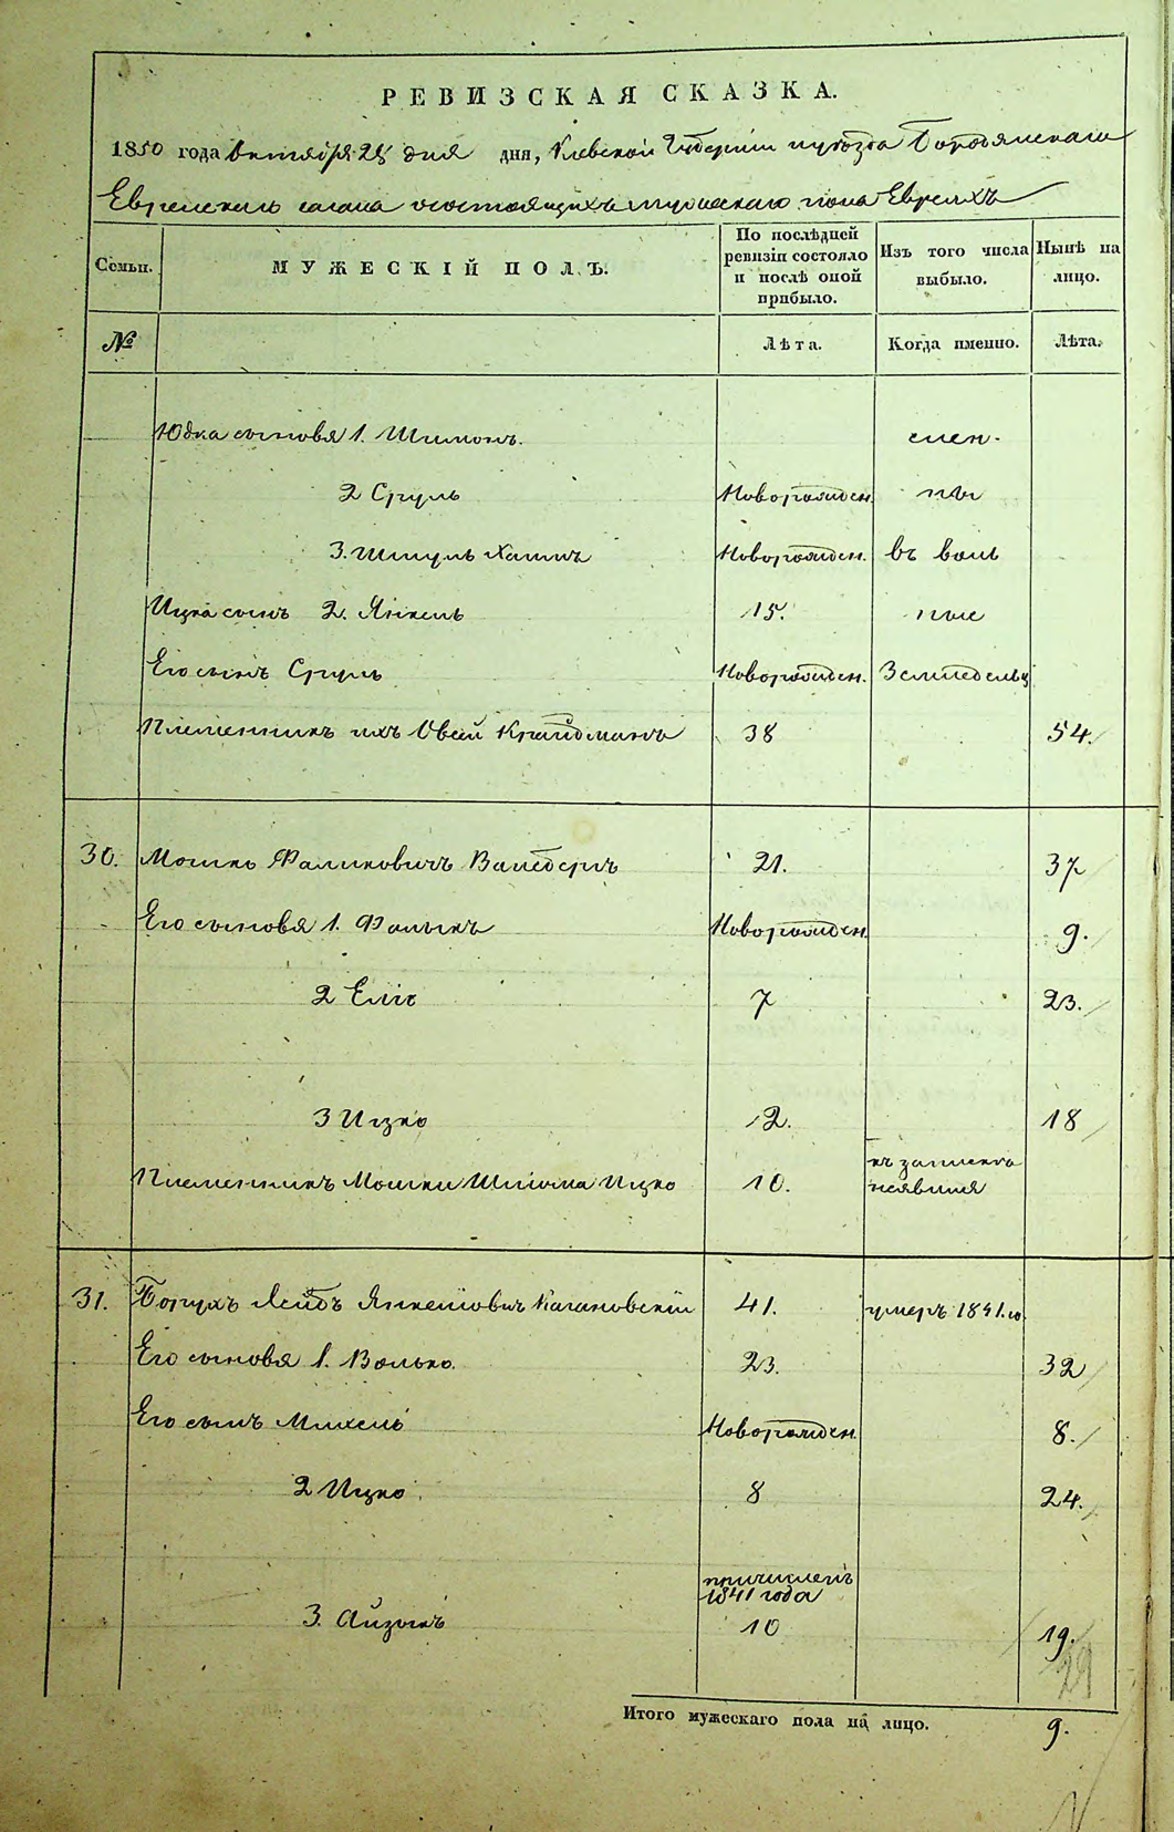 РЕВИЗСКАЯ СКАЗКА.
1850 года октября 25 дня дня, Киевской Губернии и уезда Бородянскаго
Еврейскаго кагала о состоящихъ мужескаго пола Евреяхъ
Семьи.
МУЖЕСКІЙ ПОЛЪ.
По послѣдней ревизіи состояло и послѣ оной прибыло.
Изъ того числа выбыло.
Нынѣ на лицо.
№
Лѣта.
Когда именно.
Лѣта.
Юдка сыновя 1. Шимонъ.
2 Сруль Новорожден.
3. Шмуль Хаимъ Новорожден. въ
Ицка сынъ 2. Янкель 15.
Его сынъ Сруль Новорожден. Земледельцы
Племенникъ ихъ Овсей 38 54.
30. Мошко Фаликовичъ Вайсберъ 21. 37
Его сыновя 1. Фалыкъ Новорожден 9.
2 Еліе 7 23.
3 Ицко 2. 18
Племенникъ Мошки Шліома Ицко 10. къ запискѣ неявился
31. Борухъ Лейбъ Янкеліовичъ Кагановскій 41. умеръ 1841.го
Его сыновя 1. Волько. 23. 32
Его сынъ Михель Новорожден. 8.
2 Ицко. 8 24.
причисленъ
1841 года
3. Айзыкъ 10 19.
29
Итого мужескаго пола на лицо. 9.